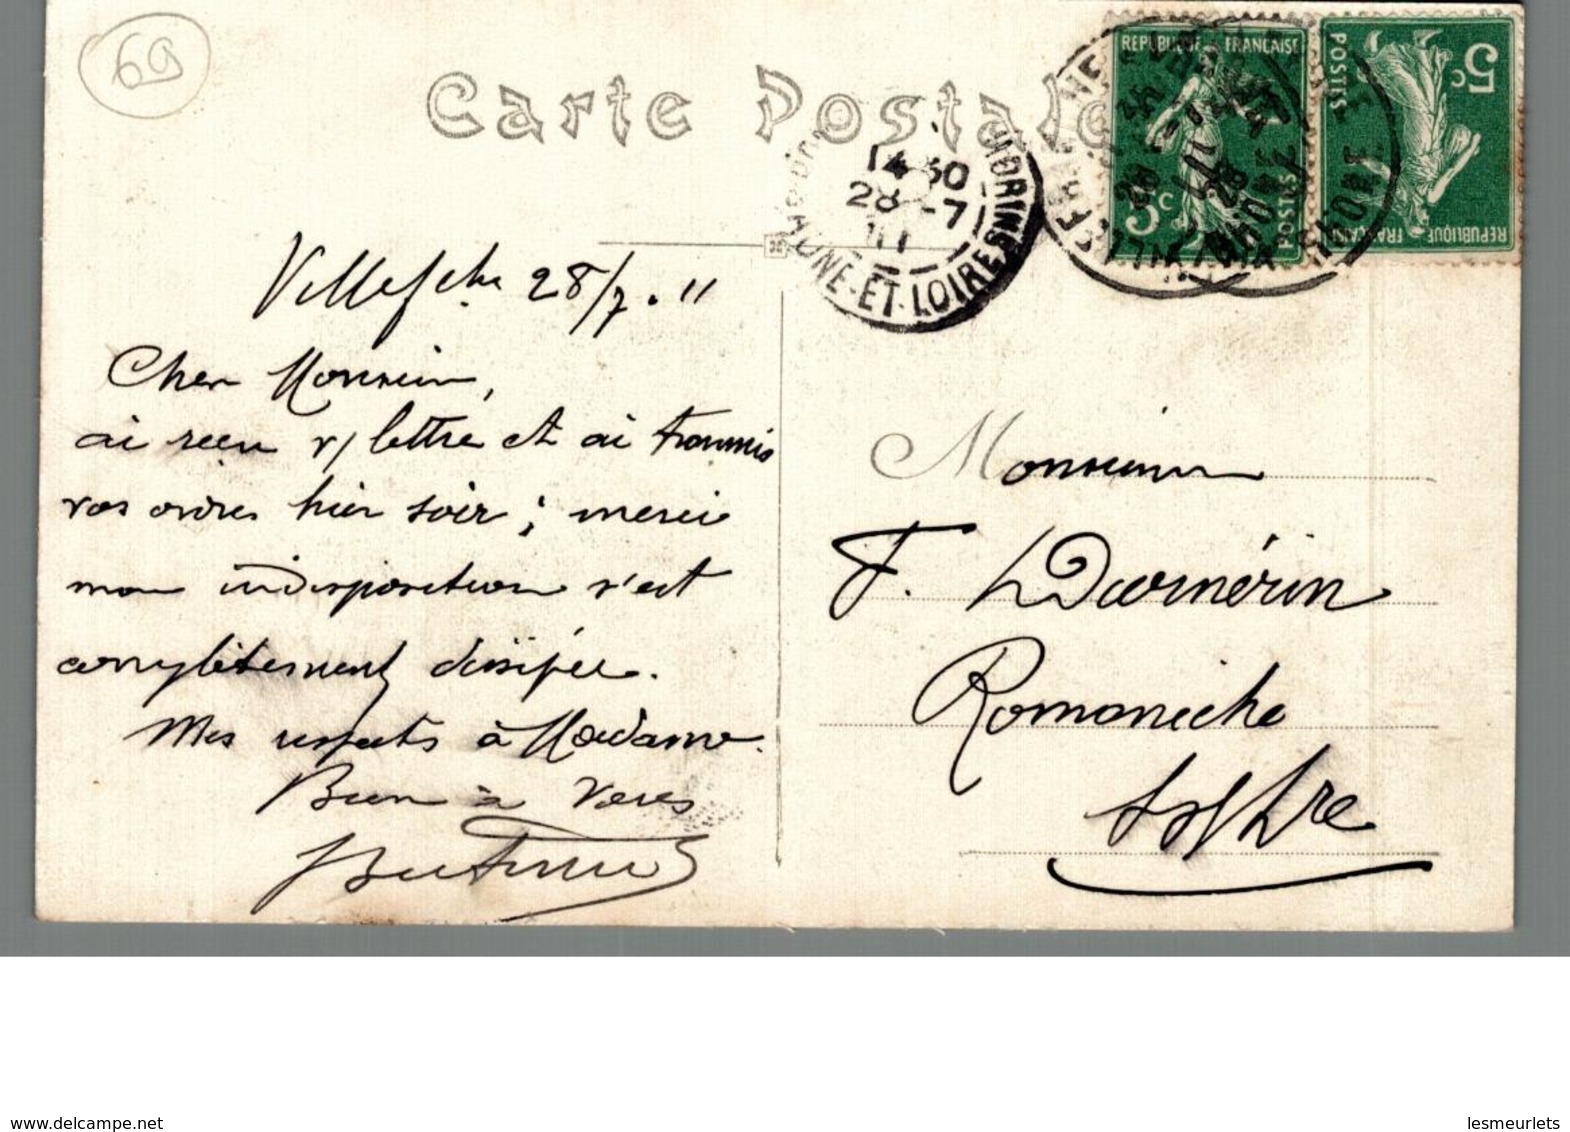 69
Carte Postale
REPUBLIQUE FRANÇAISE
5c
POSTES
REPUBLIQUE FRANÇAISE
5c
POSTES
14 30
28 -7
11
SAONE-ET-LOIRE
Villefche 28/7. 11
Cher Monsieur,
ai reçu v/ lettre et ai transmis
vos ordres hier soir ; merci
mon indisposition s'est
complètement dissipée.
Mes respects à Madame.
Bien à vous
Monsieur
F. Damérin
Romanèche
S/Lre
www.delcampe.net
lesmeurlets